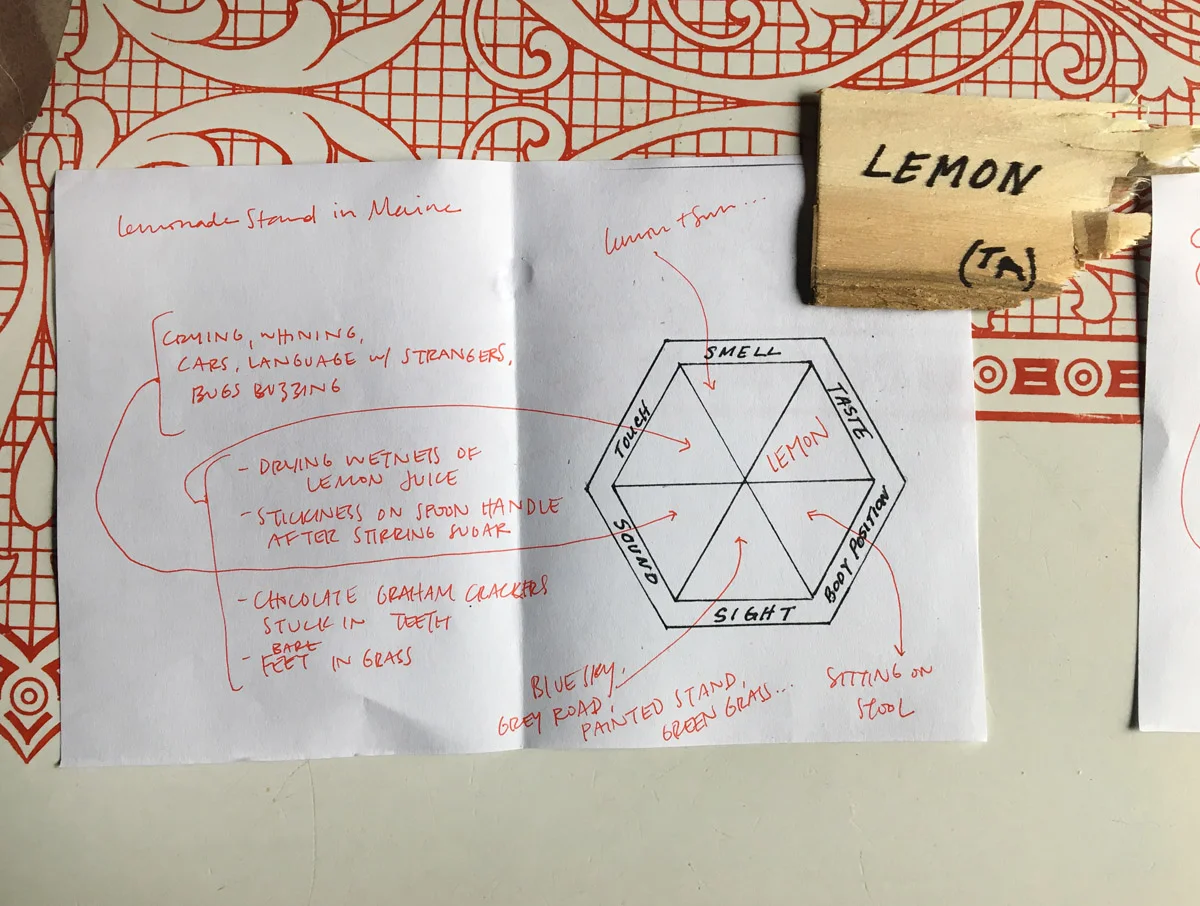 Lemonade Stand in Maine
CRYING, WHINING,
CARS, LANGUAGE w/ STRANGERS,
BUGS BUZZING
- DRYING WETNESS OF
LEMON JUICE
- STICKINESS ON SPOON HANDLE
AFTER STIRRING SUGAR
- CHOCOLATE GRAHAM CRACKERS
STUCK IN TEETH
BARE
- FEET IN GRASS
lemon + sun...
SMELL
TASTE
TOUCH
LEMON
SOUND
BODY POSITION
SIGHT
BLUE SKY,
GREY ROAD,
PAINTED STAND,
GREEN GRASS...
SITTING ON
STOOL
LEMON
(TA)